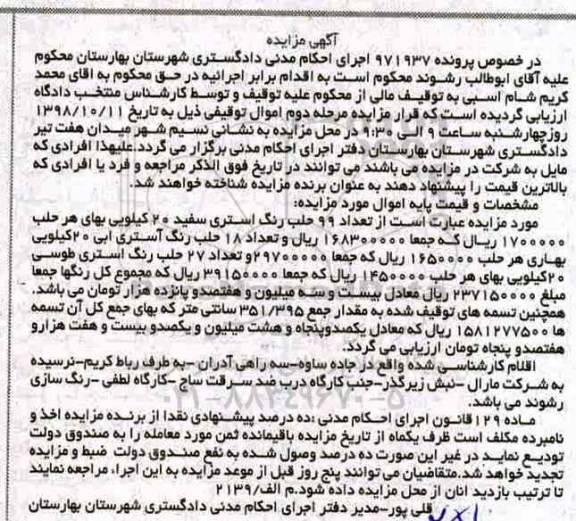 آگهی مزایده
در خصوص پرونده ۹۷۱۹۳۷ اجرای احکام مدنی دادگستری شهرستان بهارستان محکوم
علیه آقای ابوطالب رشوند محکوم است به اقدام برابر اجرائیه در حق محکوم به اقای محمد
کریم شام اسبی به توقیف مالی از محکوم علیه توقیف و توسط کارشناس منتخب دادگاه
ارزیابی گردیده است که قرار مزایده مرحله دوم اموال توقیفی ذیل به تاریخ ۱۳۹۸/۱۰/۱۱
روزچهارشنبه ساعت ۹ الی ۹:۳۰ در محل مزایده به نشانی نسیم شهر میدان هفت تیر
دادگستری شهرستان بهارستان دفتر اجرای احکام مدنی برگزار می گردد.علیهذا افرادی که
مایل به شرکت در مزایده می باشند می توانند در تاریخ فوق الذکر مراجعه و فرد یا افرادی که
بالاترین قیمت را پیشنهاد دهند به عنوان برنده مزایده شناخته خواهند شد.
مشخصات و قیمت پایه اموال مورد مزایده:
مورد مزایده عبارت است از تعداد ۹۹ حلب رنگ استری سفید ۲۰ کیلویی بهای هر حلب
۱۷۰۰۰۰۰ ریال که جمعا ۱۶۸۳۰۰۰۰۰ ریال و تعداد ۱۸ حلب رنگ آستری ابی ۲۰کیلویی
بهاری هر حلب ۱۶۵۰۰۰۰ ریال که جمعا ۲۹۷۰۰۰۰۰و تعداد ۲۷ حلب رنگ استری طوسی
۲۰کیلویی بهای هر حلب ۱۴۵۰۰۰۰ ریال که جمعا ۳۹۱۵۰۰۰۰ ریال که مجموع کل رنگها جمعا
مبلغ ۲۳۷۱۵۰۰۰۰ ریال معادل بیست و سه میلیون و هفتصدو پانزده هزار تومان می باشد.
همچنین تسمه های توقیف شده به مقدار جمع ۳۵۱/۳۹۵ سانتی متر که بهای جمع کل آن تسمه
ها ۱۵۸۱۲۷۷۵۰۰ ریال که معادل یکصدوپنجاه و هشت میلیون و یکصدو بیست و هفت هزارو
هفتصدو پنجاه تومان ارزیابی می گردد.
اقلام کارشناسی شده واقع در جاده ساوه-سه راهی آدران -به طرف رباط کریم-نرسیده
به شرکت مارال -نبش زیرگذر-جنب کارگاه درب ضد سرقت ساج -کارگاه لطفی -رنگ سازی
رشوند می باشد.
ماده ۱۲۹ قانون اجرای احکام مدنی :ده درصد پیشنهادی نقدا از برنده مزایده اخذ و
نامبرده مکلف است ظرف یکماه از تاریخ مزایده باقیمانده ثمن مورد معامله را به صندوق دولت
تودیع نماید در غیر این صورت ده درصد وصول شده به نفع صندوق دولت ضبط و مزایده
تجدید خواهد شد.متقاضیان می توانند پنج روز قبل از موعد مزایده به این اجراء مراجعه نمایند
تا ترتیب بازدید انان از محل مزایده داده شود.م الف/۲۱۳۹
قلی پور-مدیر دفتر اجرای احکام مدنی دادگستری شهرستان بهارستان
۲×۱